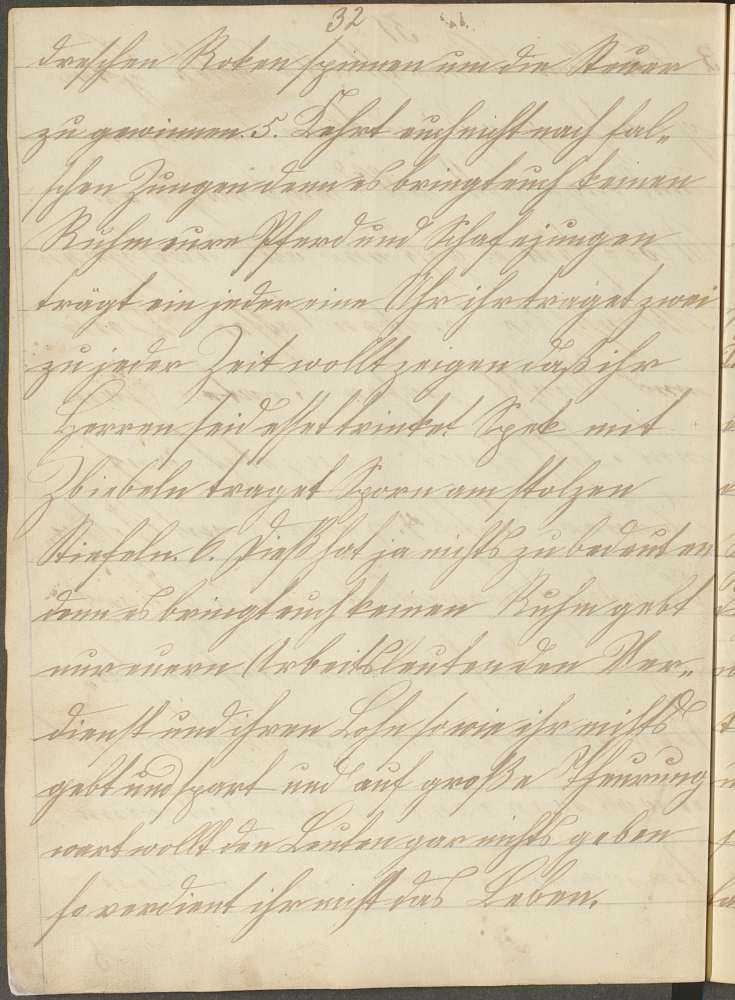 32
dreschen Roken spinnen um die Steuer
zu gewinnen. 5. Kehrt euch nicht nach fal-
schen Zungen denn es bringt euch keinen
Ruhm eure Pferd und Schafejungen
trägt ein jeder eine Uhr ihr traget zwei
zu jeder Zeit wollt zeigen daß ihr
Herren seid esset trinket Spek mit
Zbiebeln traget Sporn am stolzen
Stiefeln. 6. Dieß hat ja nichts zu bedeuten
denn es bringt euch keinen Ruhm gebt
nur euern Arbeitsleuten den Ver-
dienst und ihren Lohn so wie ihr nichts
gebt und spart und auf große Theurung
wart wollt den Leuten gar nichts geben
so verdient ihr nicht das Leben.